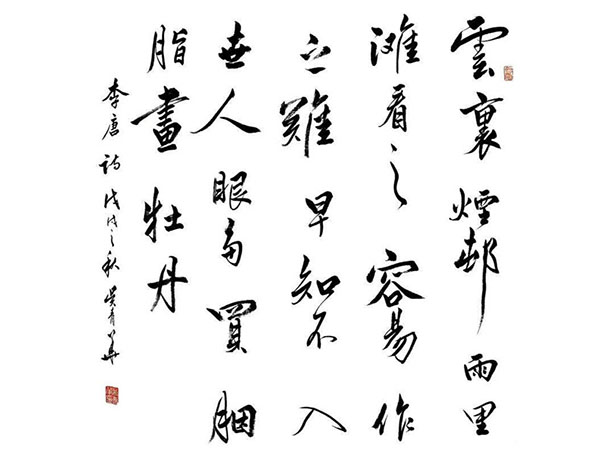 雲裏煙邨雨里
灘看之容易作
之難早知不入
世人眼多買胭
脂畫牡丹
李唐詩戊戌之秋吳青華